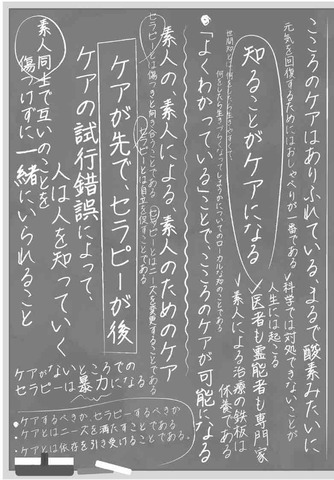 こころのケアはありふれている。まるで酸素みたいに
元気を回復するためにはおしゃべりが一番である
科学では対処できないことが
人生には起こる
知ることがケアになる
医者も霊能者も専門家
素人による治療の鉄板は
休養である
世間知とは
何をしたら生きづらくなってしまうかについてのローカルな知のことである
「よくわかっている」ことで、こころのケアが可能になる
素人の、素人による、素人のためのケア
セラピーとは傷つきと向き合うことである
セラピーとはニーズを変更することである
セラピーとは自立を促すことである
ケアが先で、セラピーが後
ケアの試行錯誤によって、
人は人を知っていく
素人同士で互いのことを
傷つけずに一緒にいられること
ケアがないところでの
セラピーは暴力になる
・ケアするべきか、セラピーするべきか
・ケアとはニーズを満たすことである
・ケアとは依存を引き受けることである。